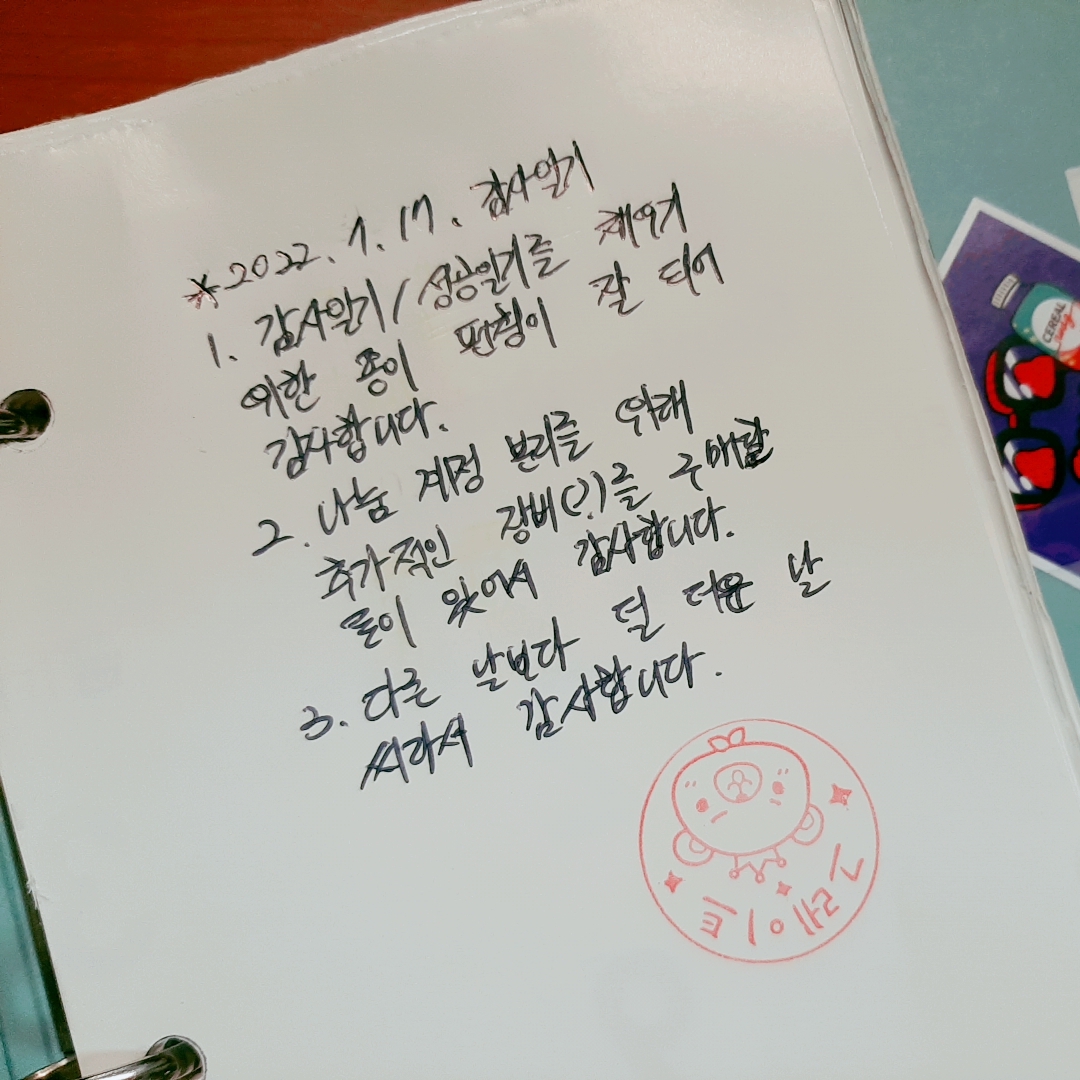 *2022. 7. 17. 감사일기
1. 감사일기/성공일기를 채우기
위한 종이 펀칭이 잘 되어
감사합니다.
2. 나눔 계정 분리를 위해
추가적인 장비(?)를 구매할
돈이 있어서 감사합니다.
3. 다른 날보다 덜 더운 날
씨라서 감사합니다.
CEREAL